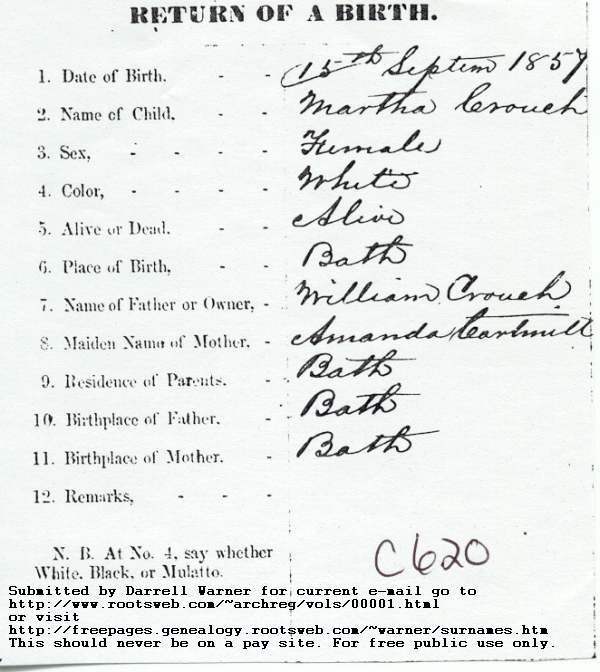 RETURN OF A BIRTH.
1. Date of Birth. - - 15th Septem 1857
2. Name of Child. - - Martha Crouch
3. Sex, - - - - Female
4. Color, - - - - White
5. Alive or Dead. - - Alive
6. Place of Birth, - - Bath
7. Name of Father or Owner, - William Crouch
8. Maiden Name of Mother. - Amanda Cartmill
9. Residence of Parents. - Bath
10. Birthplace of Father. - Bath
11. Birthplace of Mother. - Bath
12. Remarks, - - -
N. B. At No. 4, say whether
White, Black, or Mulatto.
C620
Submitted by Darrell Warner for current e-mail go to
http://www.rootsweb.com/~archreg/vols/00001.html
or visit
http://freepages.genealogy.rootsweb.com/~warner/surnames.htm
This should never be on a pay site. For free public use only.